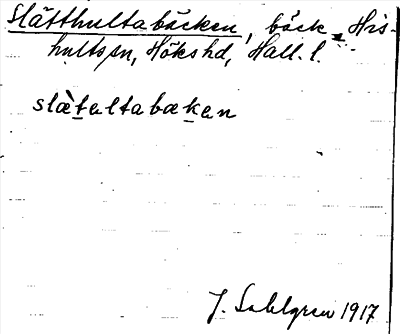 Slätthultabäcken, bäck, His-
hults sn, Hökshd, Hall. l.
slæ̀teltabæken
J. Sahlgren 1917